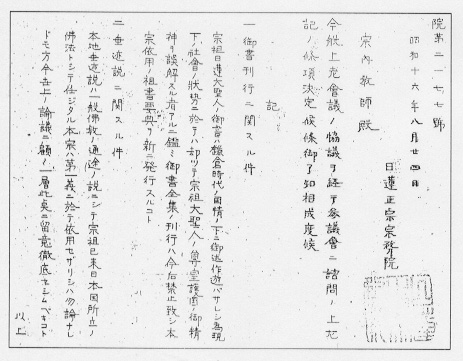 院第二一七七號
昭和十六年八月廿四日
日蓮正宗宗務院
宗内教師殿
今般上老會議ノ協議ヲ経テ参議會ニ諮問ノ上左
記ノ條項決定候條御了知相成度候
記
一御書刊行ニ関スル件
宗祖日蓮大聖人ノ御書ハ鎌倉時代ノ國情ノ下ニ御述作遊バサレシ為現
下ノ社會ノ状勢ニ於テハ却リテ宗祖大聖人ノ尊皇護國ノ御精
神ヲ誤解スル者アルニ鑑ミ御書全集ノ刊行ハ今后禁止致シ本
宗依用ノ祖書要典ヲ新ニ発行スルコト
二垂迹説ニ関スル件
本地垂迹説ハ一般佛教ノ通途ノ説ニシテ宗祖已来日本國所立ノ
佛法トシテ信ジタル本宗ハ第一義ニ於テ依用セザリシハ勿論ナレ
ドモ方今世上ノ論議ニ顧ミ一層此点ニ留意徹底セシムベキコト
以上